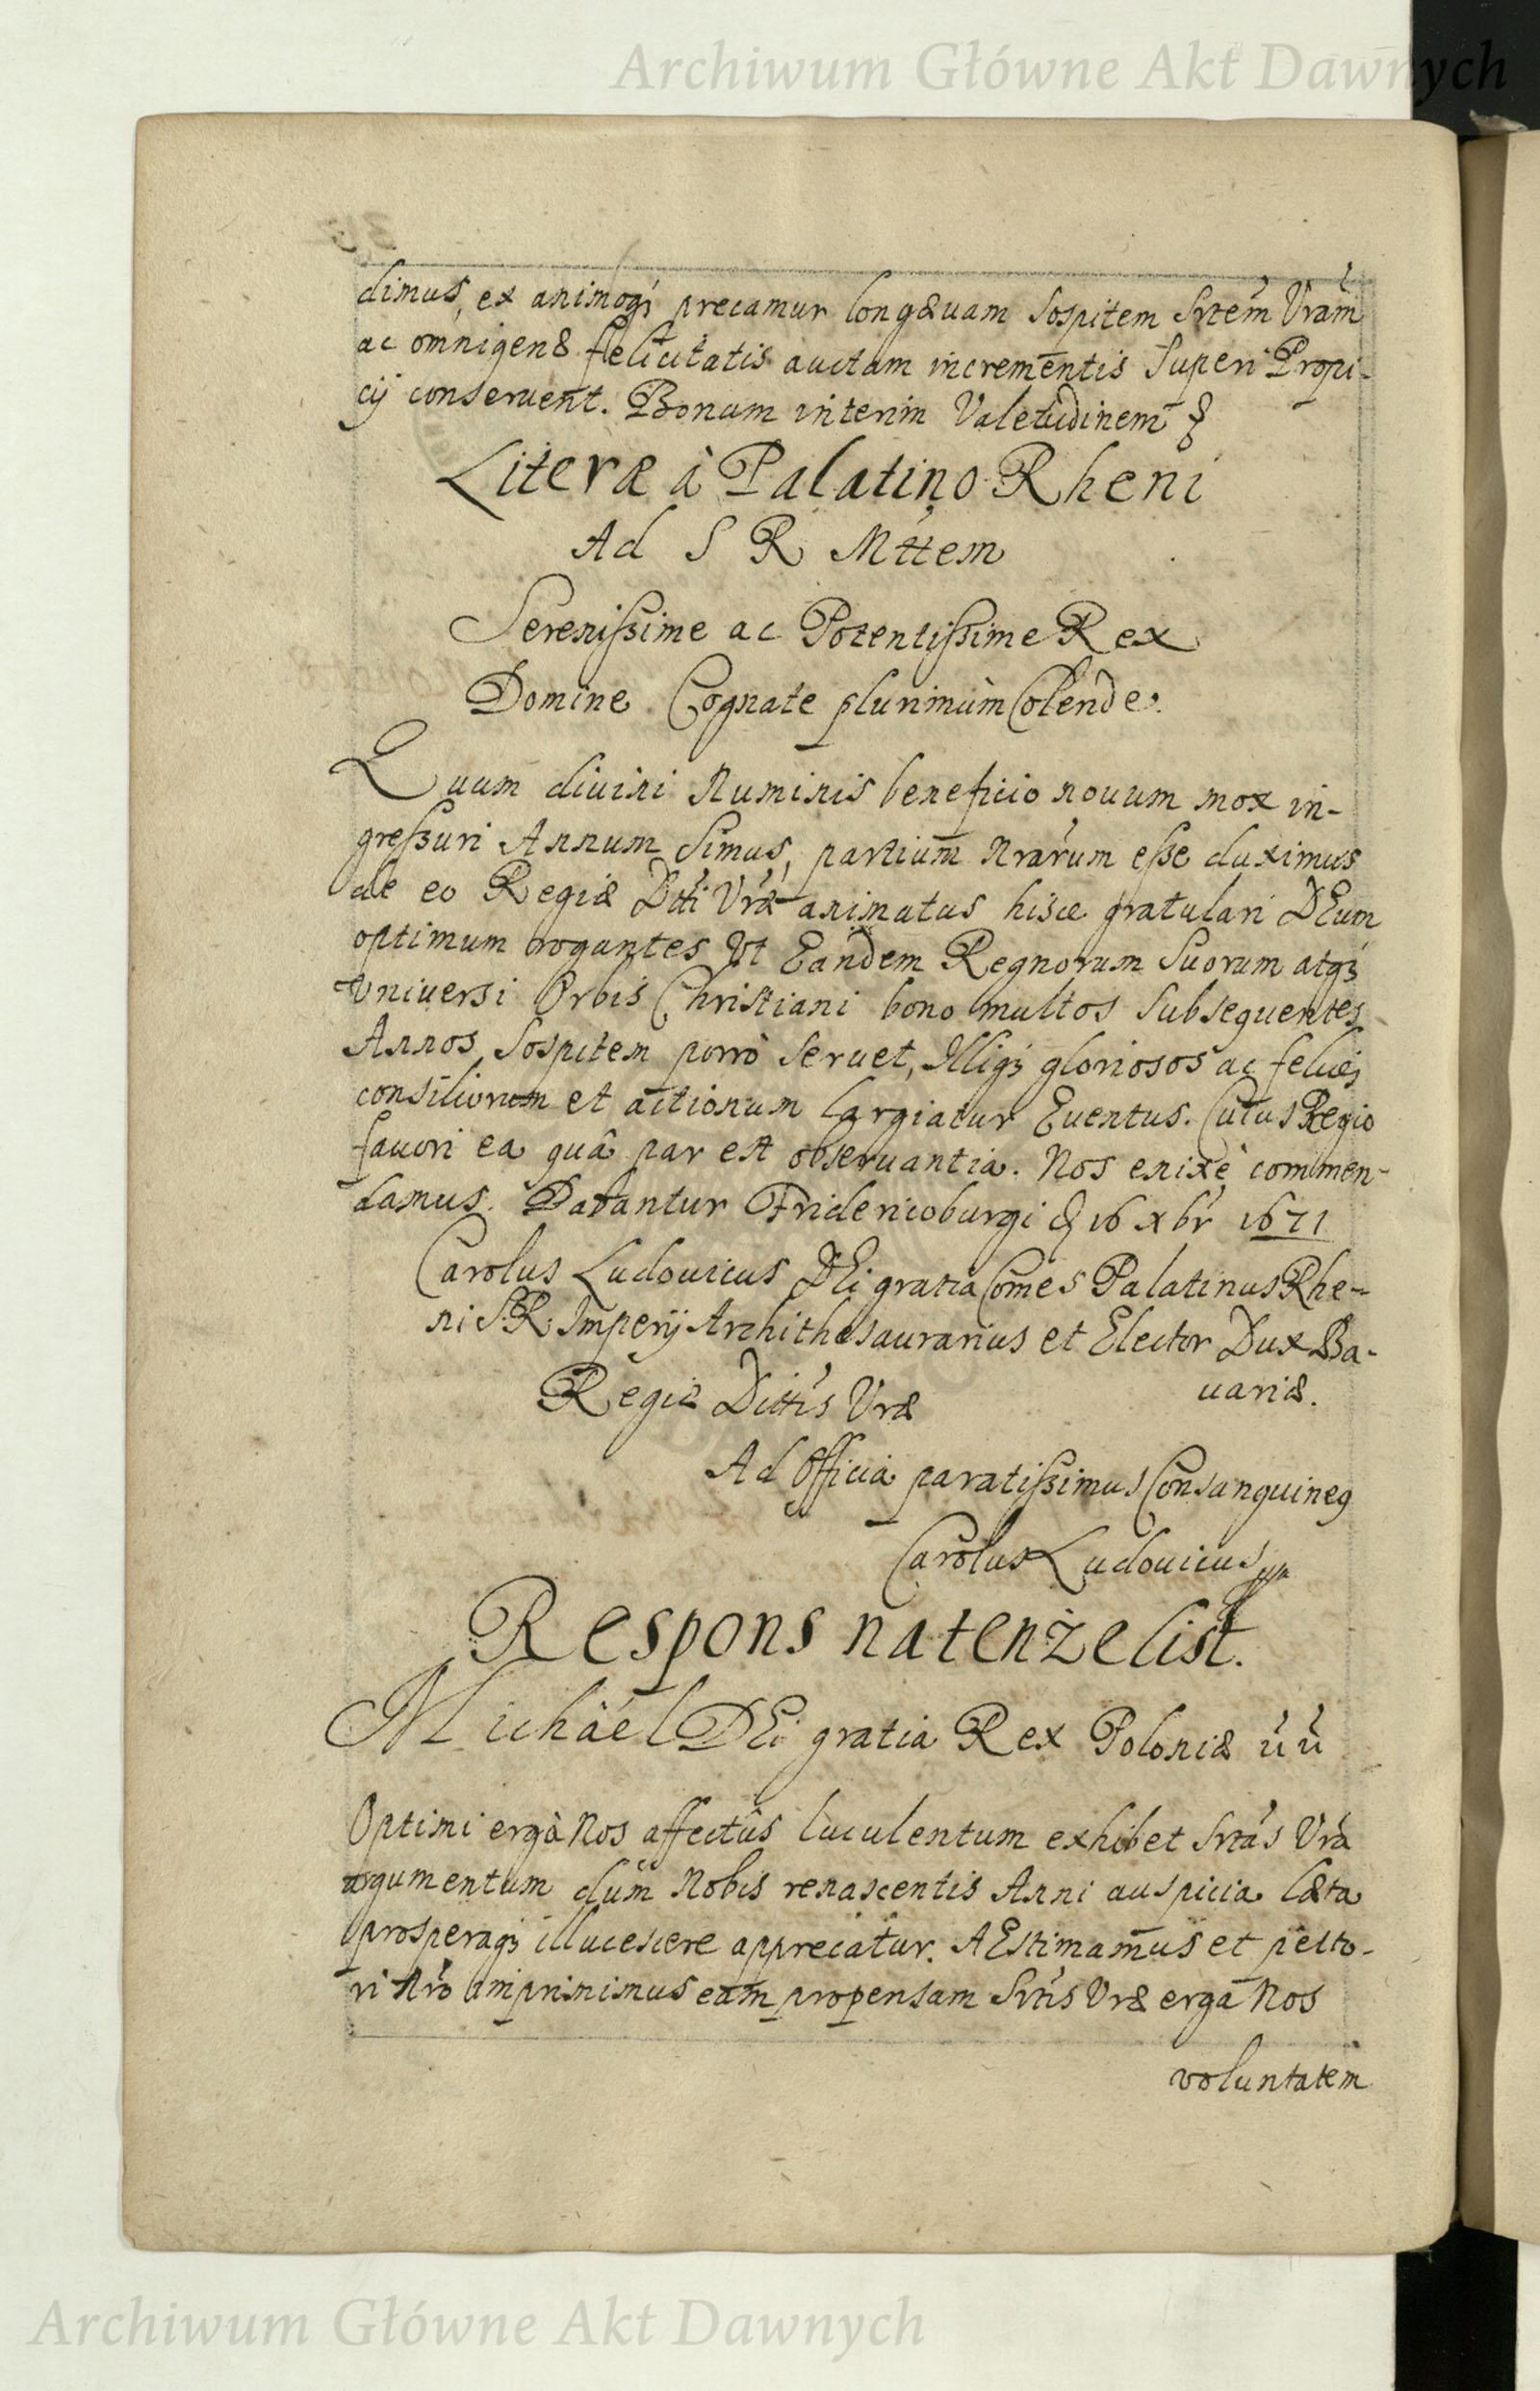 Archiwum Główne Akt Dawnych
dimus, ex animoq́ precamur longævam Sospitem Srtem̃ Vram̃
ac omnigenæ felicitatis auctam incrementis Superi Propi-
cij conseruent. Bonam interim Valetudinem &
Literæ à Palatino Rheni
Ad S R Mttem
Serenissime ac Potentissime Rex
Domine Cognate plurimùm Colende.
Quum diuini Numinis beneficio nouum mox in-
gressuri Annum Simus, partium Nrarum esse duximus
de eo Regiæ Dtti Vræ animatus hisce gratulari DEum
optimum rogantes Vt Eandem Regnorum Suorum atqꝫ
Vniuersi Orbis Christiani bono multos Subsequentes
Annos Sospitem porrò Seruet, Illiqꝫ gloriosos ac felices
consiliorum et actionum largiatur Euentus. Cuius Regio
fauori ea quâ par est obseruantia. Nos enixè commen-
damus. Dabantur Fridericoburgi & 16 xbr 1671
Carolus Ludouicus DEi gratia Comes Palatinus Rhe-
ni S.R. Imperij Archithesaurarius et Elector Dux Ba-
uariæ.
Regiæ Dittis Vræ
Ad Officia paratissimus Consanguineꝰ
Carolus Ludouicus
Respons na tenże list.
Michäel DEi gratia Rex Poloniæ ùù
Optimi ergà Nos affectûs luculentum exhibet Srtas Vrà
argumentum dum Nobis renascentis Anni auspicia læta
prosperaqꝫ illucescere apprecatur. AEstimamus et pecto-
ri Nro imprimimus eam propensam Srtis Vræ erga Nos
voluntatem
Archiwum Główne Akt Dawnych